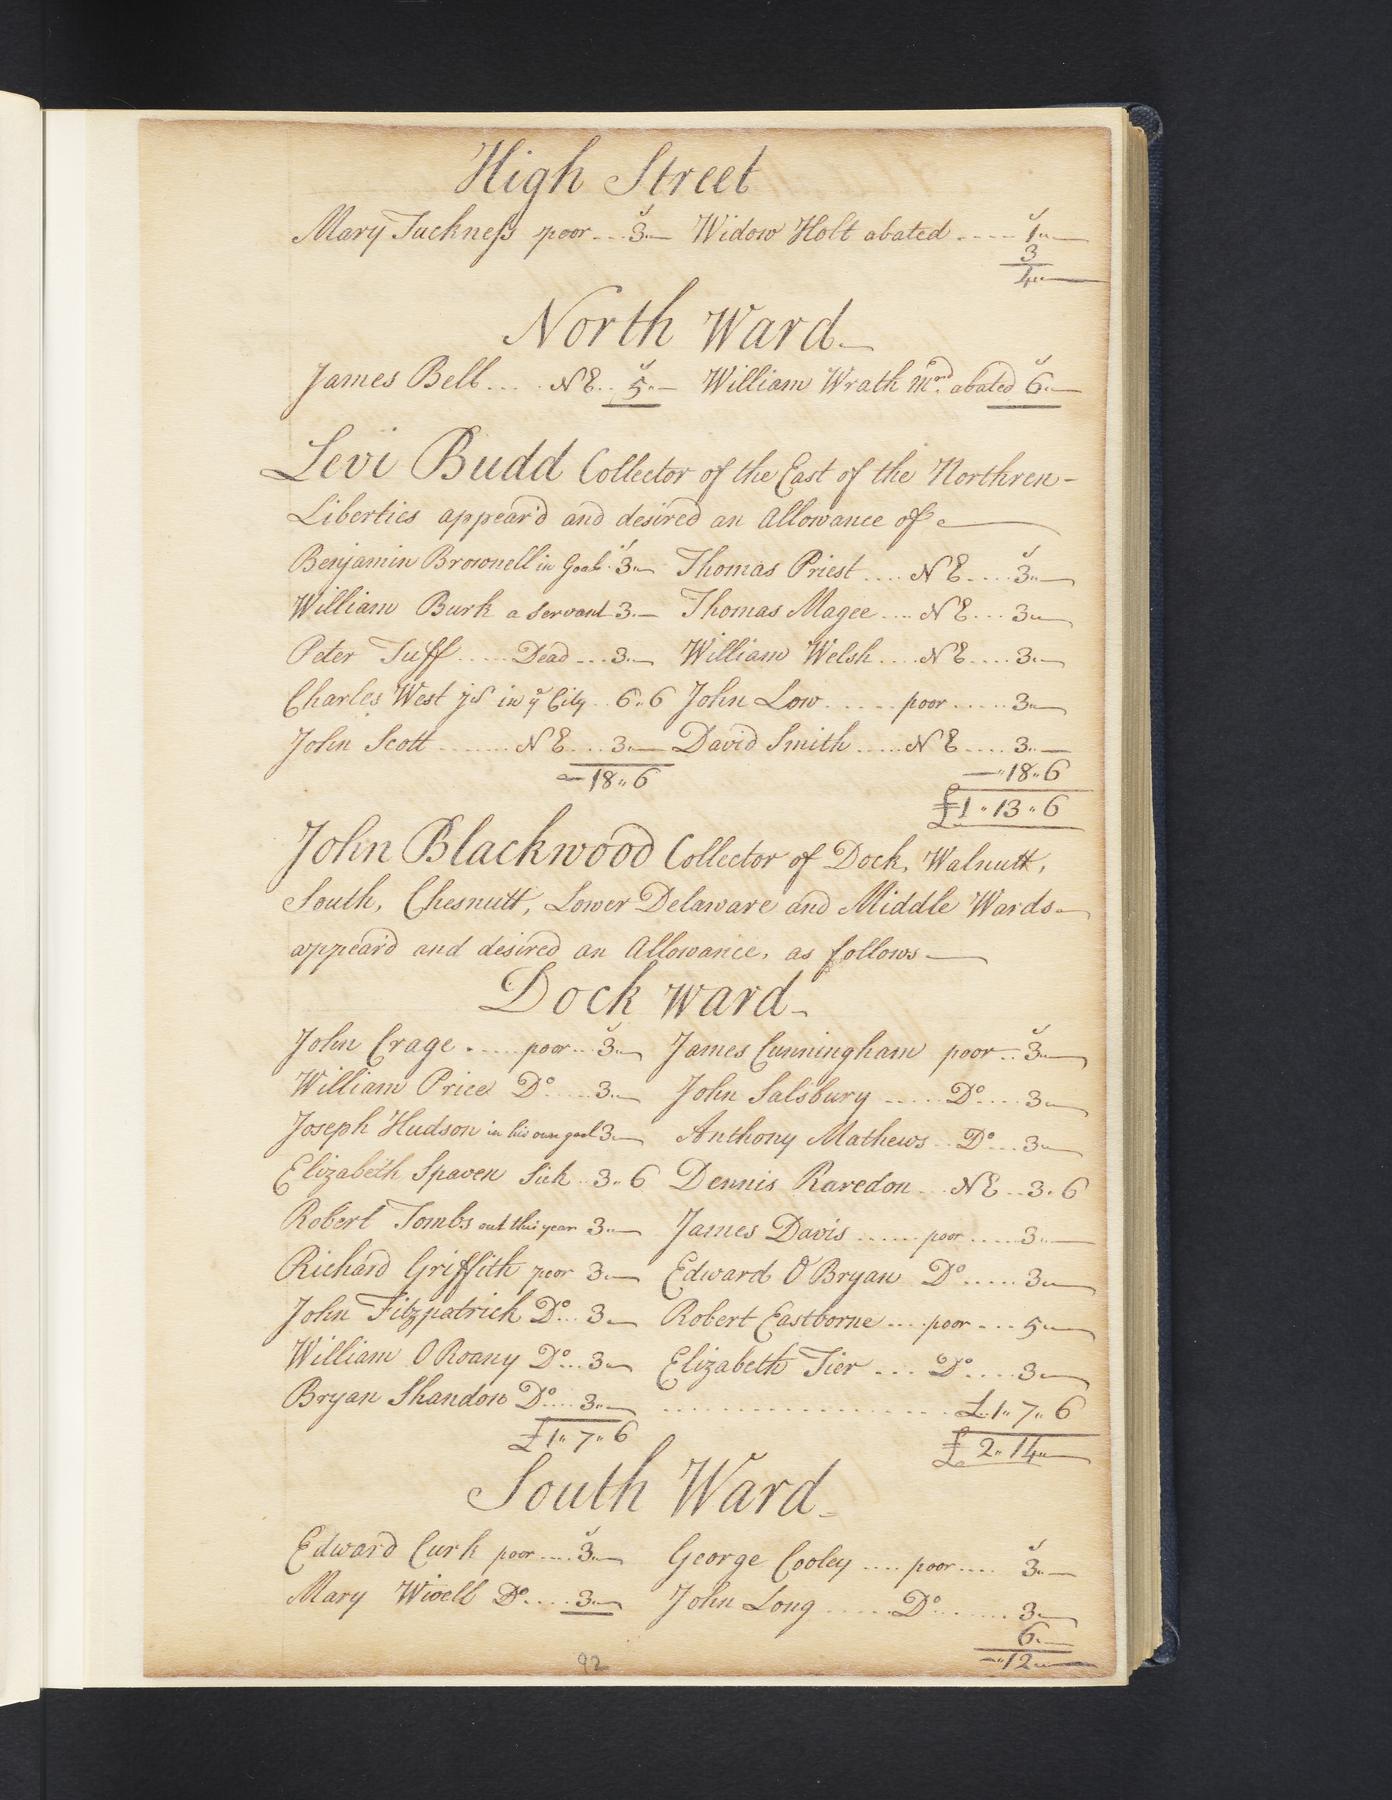 High Street
Mary Tuckness poor ... 3.. Widow Holt abated .... 1..
3
4..
North Ward
James Bell .... NE .. 5.. William Wrath Mrd. abated 6..
Levi Budd Collector of the East of the Northren-
Liberties appear'd and desired an Allowance of
Benjamin Brownell in Goal 3.. Thomas Priest .... NE .... 3..
William Burk a Servant 3.. Thomas Magee .... NE ... 3..
Peter Tuff ..... Dead ... 3.. William Welsh .... NE .... 3..
Charles West jr in ye City .. 6..6 John Low ...... poor ..... 3..
John Scott ....... NE ... 3.. David Smith ..... NE .... 3..
18..6 18..6
£1..13..6
John Blackwood Collector of Dock, Walnutt,
South, Chesnutt, Lower Delaware and Middle Wards
appear'd and desired an Allowance, as follows
Dock Ward
John Crage ..... poor ... 3.. James Cunningham poor ... 3..
William Price Do .... 3.. John Salsbury ..... Do .... 3..
Joseph Hudson in his own goal 3.. Anthony Mathews .. Do ... 3..
Elizabeth Spaven Sick .. 3..6 Dennis Raredon ... NE .. 3..6
Robert Tombs out this year 3.. James Davis ...... poor ..... 3..
Richard Griffith poor 3.. Edward O Bryan Do ..... 3..
John Fitzpatrick Do ... 3.. Robert Eastborne .... poor ... 5..
William O Roany Do ... 3.. Elizabeth Tier .... Do .... 3..
Bryan Shandon Do .... 3.. .................. £1..7..6
£1..7..6 £2..14..
South Ward
Edward Curk poor .... 3.. George Cooley .... poor .... 3..
Mary Wivell Do .... 3.. John Long ...... Do ....... 3..
6..
12..
92